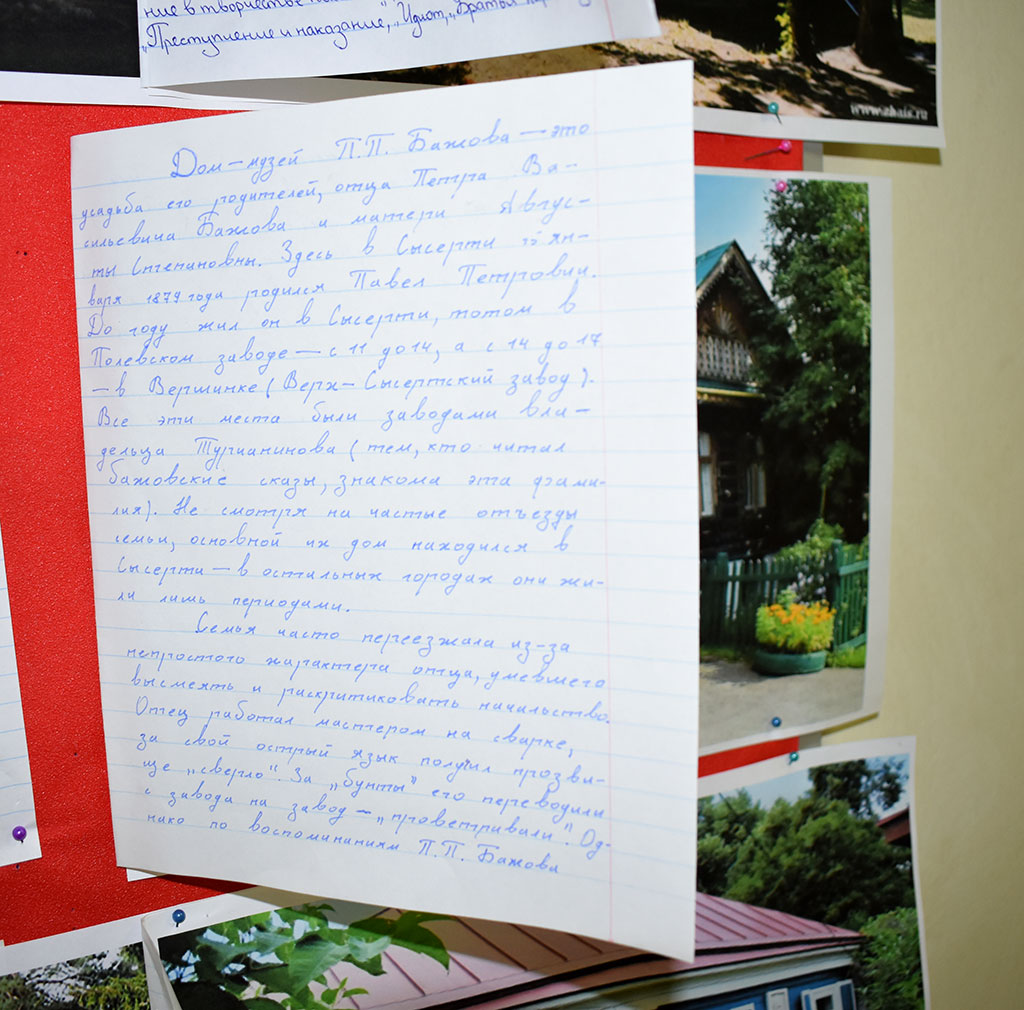 ние в творчестве
„Преступление и наказание," „Идиот," „Братья
www.
Дом-музей П.П. Бажова — это
усадьба его родителей, отца Петра Ва-
сильевича Бажова и матери Авгус-
ты Степановны. Здесь в Сысерти 15 ян-
варя 1879 года родился Павел Петрович.
До году жил он в Сысерти, потом в
Полевском заводе — с 11 до 14, а с 14 до 17
— в Вершинке (Верх-Сысертский завод).
Все эти места были заводами вла-
дельца Турчанинова (тем, кто читал
бажовские сказы, знакома эта фами-
лия). Не смотря на частые отъезды
семьи, основной их дом находился в
Сысерти — в остальных городах они жи-
ли лишь периодами.
Семья часто переезжала из-за
непростого характера отца, умевшего
высмеять и раскритиковать начальство.
Отец работал мастером на сварке,
за свой острый язык получил прозви-
ще „сверло". За „бунты" его переводили
с завода на завод — „проветривали". Од-
нако по воспоминаниям П.П. Бажова